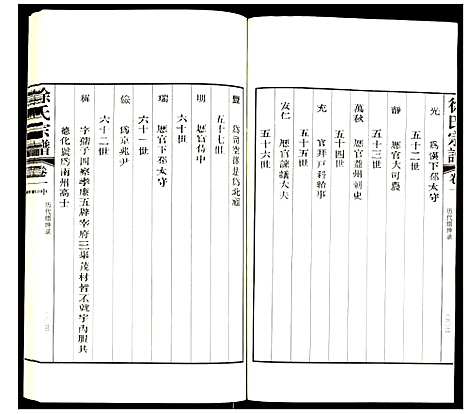 徐氏宗譜
卷一
历代缙绅录
光
為漢下邳太守
五十二世
靜
歷官大司農
五十三世
萬秋
歷官雍州刺史
五十四世
充
官拜戶科給事
五十五世
友仁
歷官諫議大夫
五十六世
豐
五十七世
明
歷官侍中
六十世
瑞
歷官下邳太守
六十一世
儉
為京兆尹
六十二世
稱
字孺子四察孝廉五辟宰府三舉茂材皆不就宇內服其
德化號為南州高士
徐氏宗譜
卷一
中
历代缙绅录